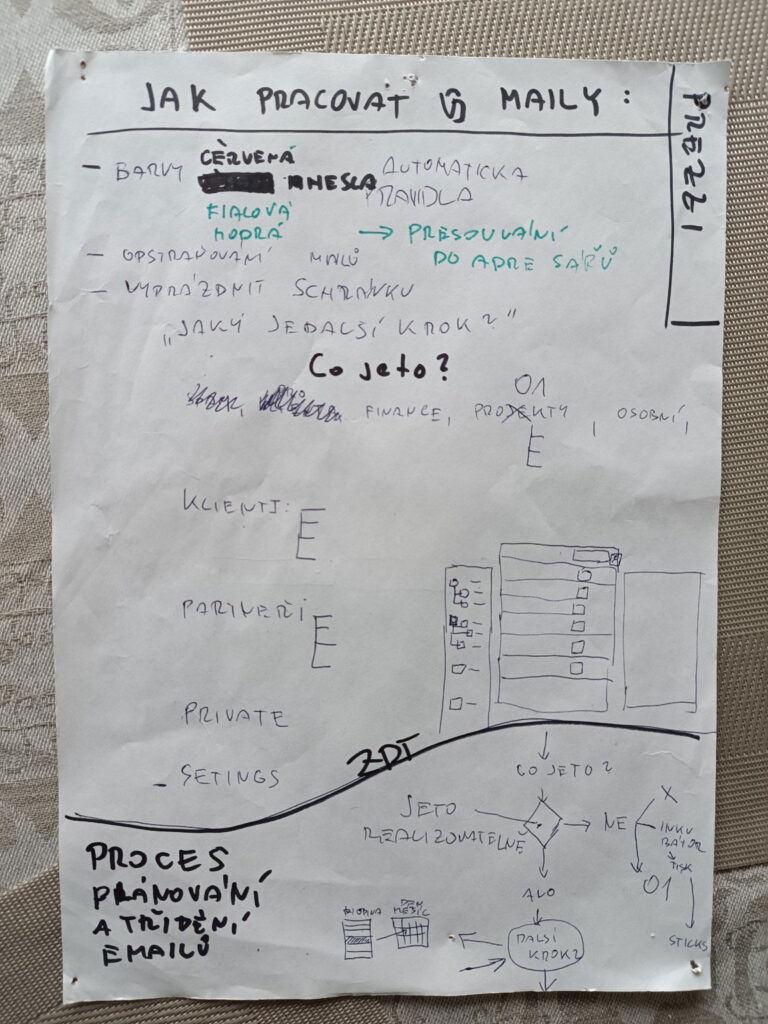 JAK PRACOVAT S MAILY:
PREZZI
- BARVY ČERVENÁ AUTOMATICKÁ
NESLA PRAVIDLA
FIALOVÁ
MODRÁ → PŘESOUVÁNÍ
DO ADRESÁŘŮ
- OPSTRAŇOVÁNÍ MAILŮ
- VYPRÁZDNIT SCHRÁNKU
„JAKÝ JE DALSÍ KROK?"
Co je to?
01
FINANCE, PROJEKTY, OSOBNÍ,
KLIENTI:
PARTNEŘI
PRIVATE
- SETINGS
ZDT
CO JE TO?
JE TO
REALIZOVATELNÉ
NE
X
INKU
BÁTOR
TISK
01
STICKS
ANO
DALSÍ
KROK?
DEN
MĚSÍC
PROCES
PLÁNOVÁNÍ
A TŘÍDĚNÍ
EMAILŮ